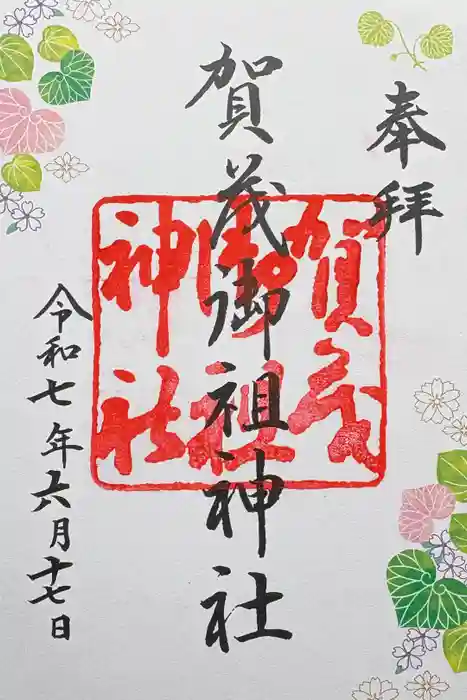 奉拝
賀茂御祖神社
賀茂
御祖
神社
令和七年六月十七日